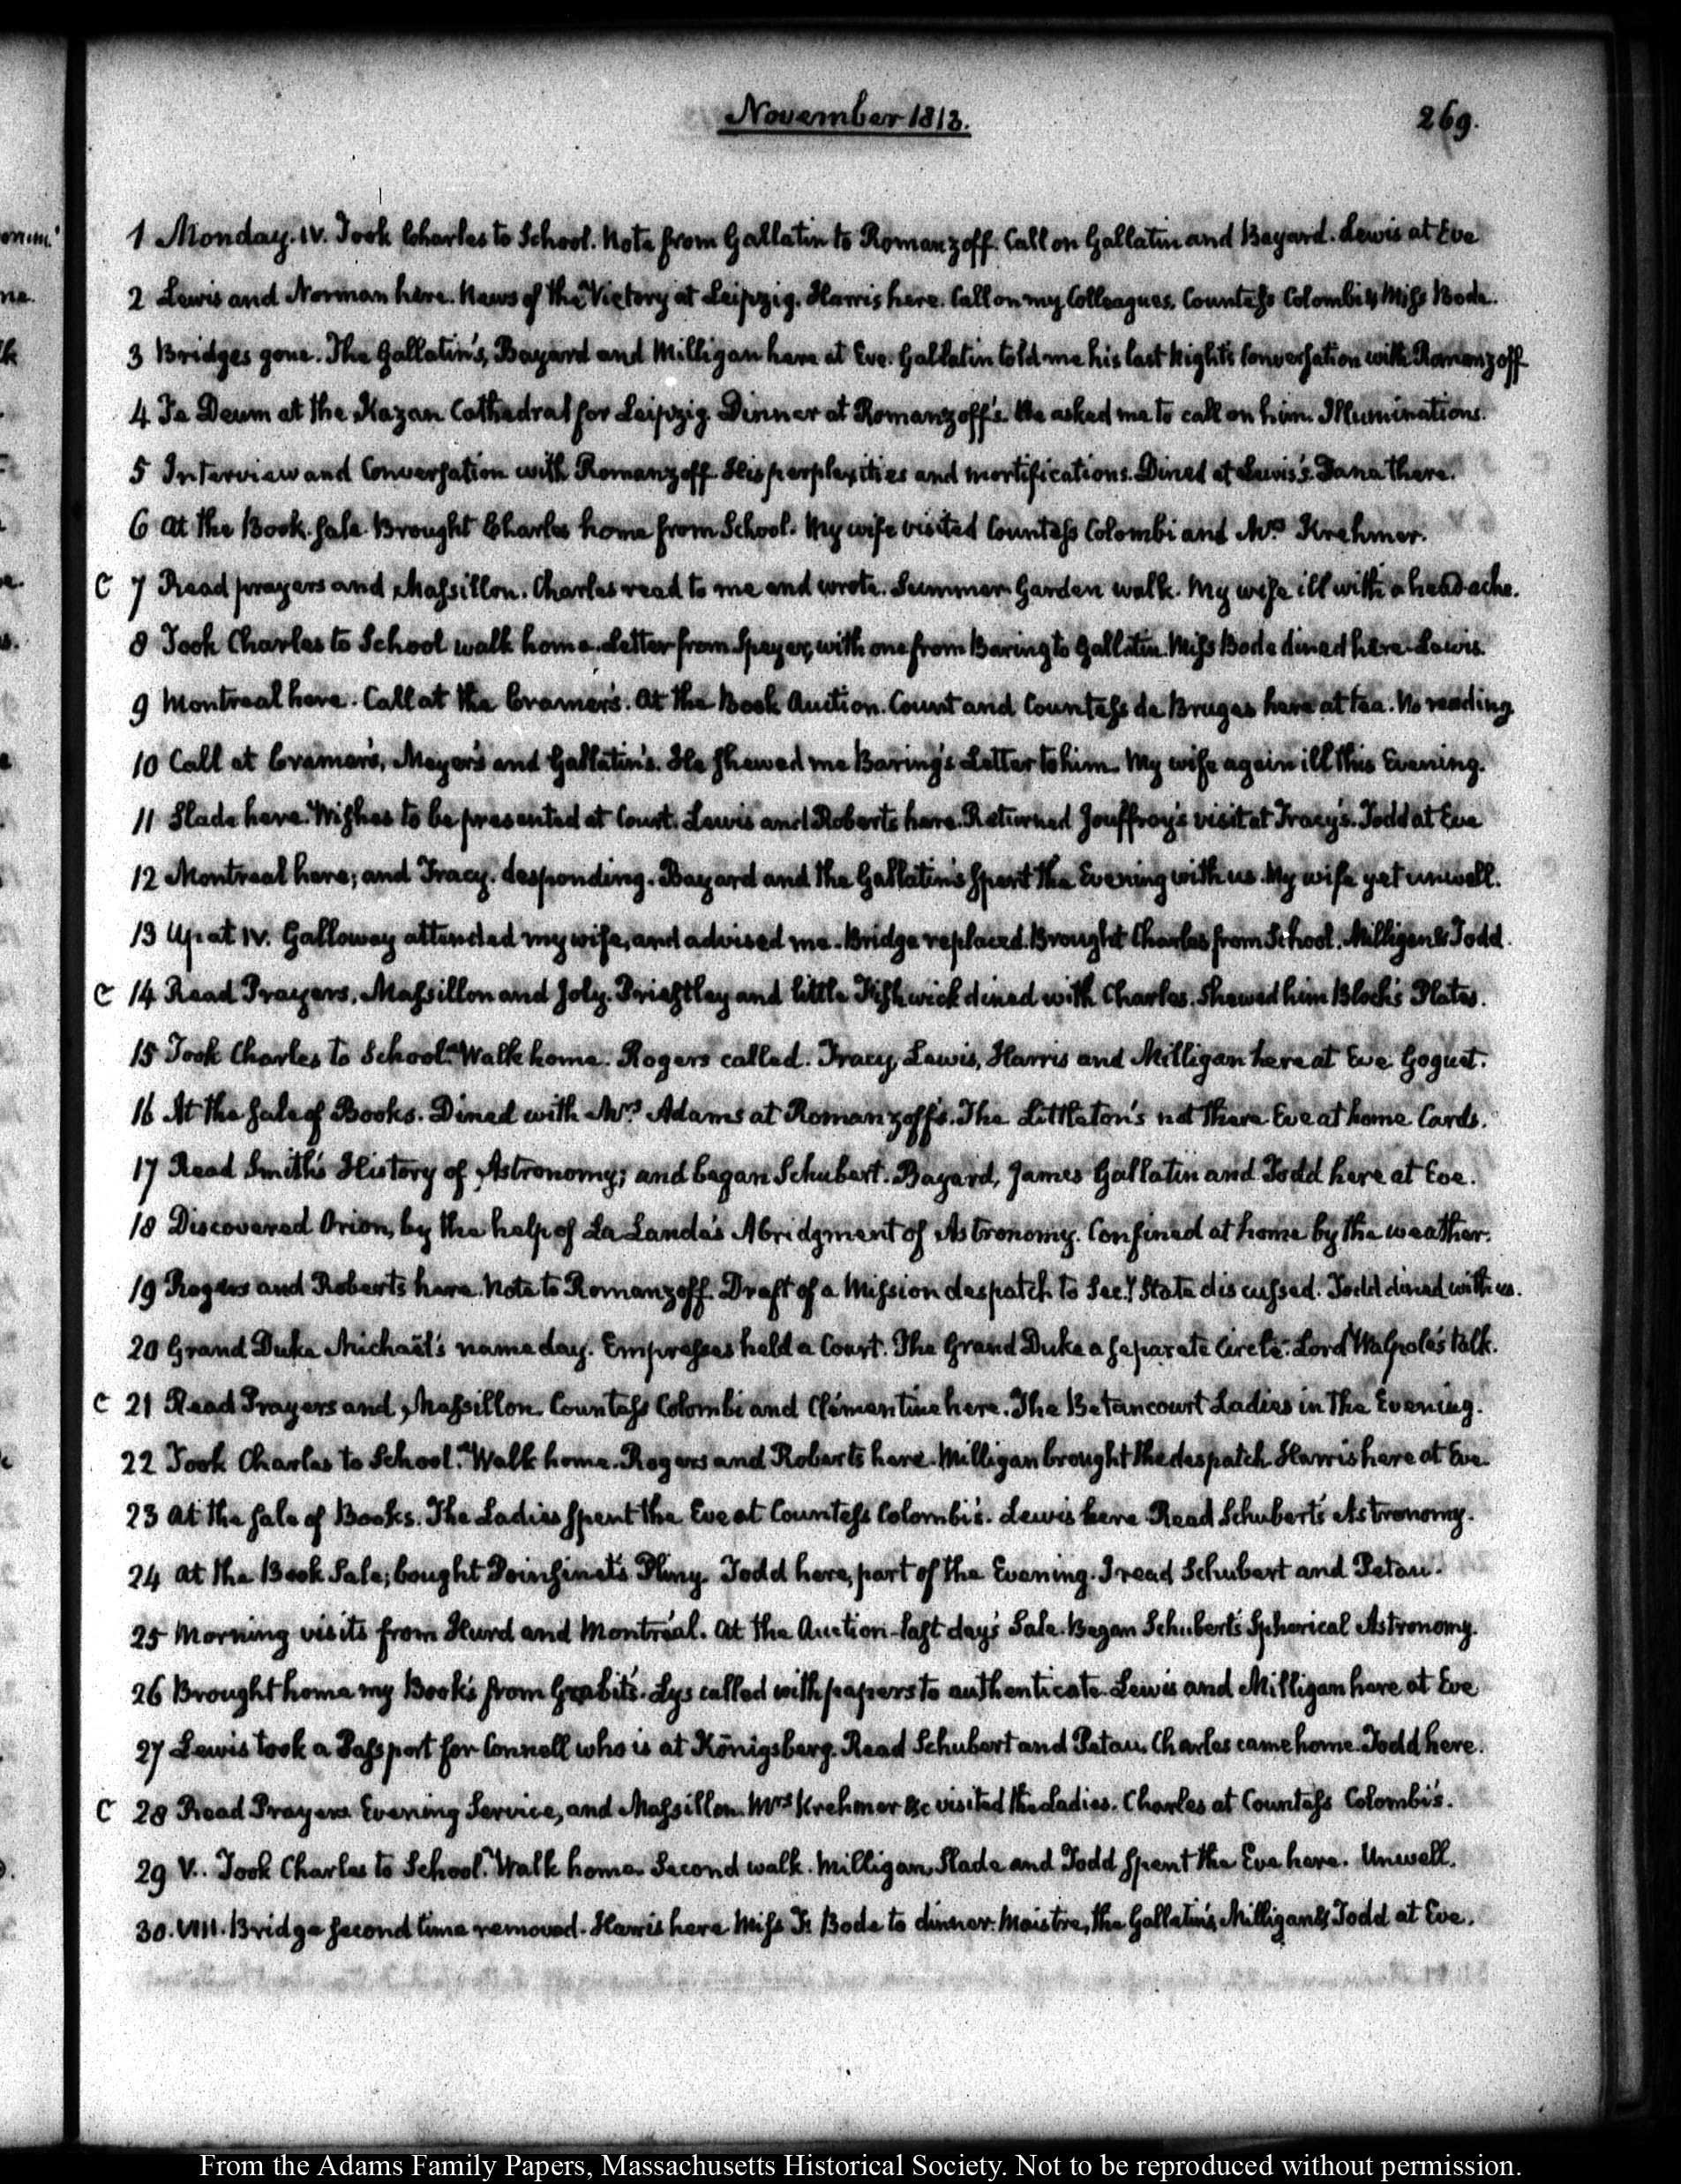 November 1813.
269.
1 Monday. IV. Took Charles to School. Note from Gallatin to Romanzoff. Call on Gallatin and Bayard. Lewis at Eve
2 Lewis and Norman here. News of the Victory at Leipzig. Harris here. Call on my Colleagues. Countess Colombi & Miss Bode.
3 Bridges gone. The Gallatin's, Bayard and Milligan here at Eve. Gallatin told me his last Night's Conversation with Romanzoff
4 Te Deum at the Kazan Cathedral for Leipzig. Dinner at Romanzoff's. He asked me to call on him. Illuminations.
5 Interview and Conversation with Romanzoff. His perplexities and mortifications. Dined at Lewis's. Dana there.
6 At the Book Sale. Brought Charles home from School. My wife visited Countess Colombi and Mrs. Krehmer.
C 7 Read prayers and Massillon. Charles read to me and wrote. Summer Garden walk. My wife ill with a head-ache.
8 Took Charles to School walk home. Letter from Speyer, with one from Baring to Gallatin. Miss Bode dined here. Lewis.
9 Montreal here. Call at the Cramer's. At the Book Auction. Count and Countess de Bruges here at tea. No reading
10 Call at Cramer's, Meyer's and Gallatin's. He shewed me Baring's Letter to him. My wife again ill this Evening.
11 Slade here. Wishes to be presented at Court. Lewis and Roberts here. Returned Jouffroy's visit at Tracy's. Todd at Eve
12 Montreal here; and Tracy. desponding. Bayard and the Gallatin's spent the Evening with us. My wife yet unwell.
13 Up at IV. Galloway attended my wife, and advised me. Bridge replaced. Brought Charles from School. Milligan & Todd.
C 14 Read Prayers, Massillon and Joly. Priestley and little Fishwick dined with Charles. Shewed him Bloch's Plates.
15 Took Charles to School. Walk home. Rogers called. Tracy, Lewis, Harris and Milligan here at Eve Goguet.
16 At the Sale of Books. Dined with Mrs. Adams at Romanzoff's. The Littleton's not there. Eve at home Cards.
17 Read Smith's History of Astronomy; and began Schubert. Bayard, James Gallatin and Todd here at Eve.
18 Discovered Orion, by the help of La Lande's Abridgment of Astronomy. Confined at home by the weather.
19 Rogers and Roberts here. Note to Romanzoff. Draft of a Mission despatch to Secy. State discussed. Todd dined with us.
20 Grand Duke Michaël's name day. Empresses held a Court. The Grand Duke a separate Circle. Lord Walpole's talk.
C 21 Read Prayers and Massillon. Countess Colombi and Clémentine here. The Betancourt Ladies in the Evening.
22 Took Charles to School. Walk home. Rogers and Roberts here. Milligan brought the despatch. Harris here at Eve.
23 At the Sale of Books. The Ladies spent the Eve at Countess Colombi's. Lewis here. Read Schubert's Astronomy.
24 At the Book Sale; bought Poinsinet's Pliny. Todd here, part of the Evening. I read Schubert and Petau.
25 Morning visits from Hurd and Montréal. At the Auction—last day's Sale. Began Schubert's Spherical Astronomy.
26 Brought home my Books from Grabit's. Lys called with papers to authenticate. Lewis and Milligan here at Eve
27 Lewis took a Passport for Connell who is at Königsberg. Read Schubert and Petau. Charles came home. Todd here.
C 28 Read Prayers Evening Service, and Massillon. Mrs Krehmer &c visited the Ladies. Charles at Countess Colombi's.
29 V. Took Charles to School. Walk home. Second walk. Milligan, Slade and Todd spent the Eve here. Unwell.
30. VIII. Bridge second time removed. Harris here Miss Bode to dinner. Maistre, the Gallatin's, Milligan & Todd at Eve.
From the Adams Family Papers, Massachusetts Historical Society. Not to be reproduced without permission.